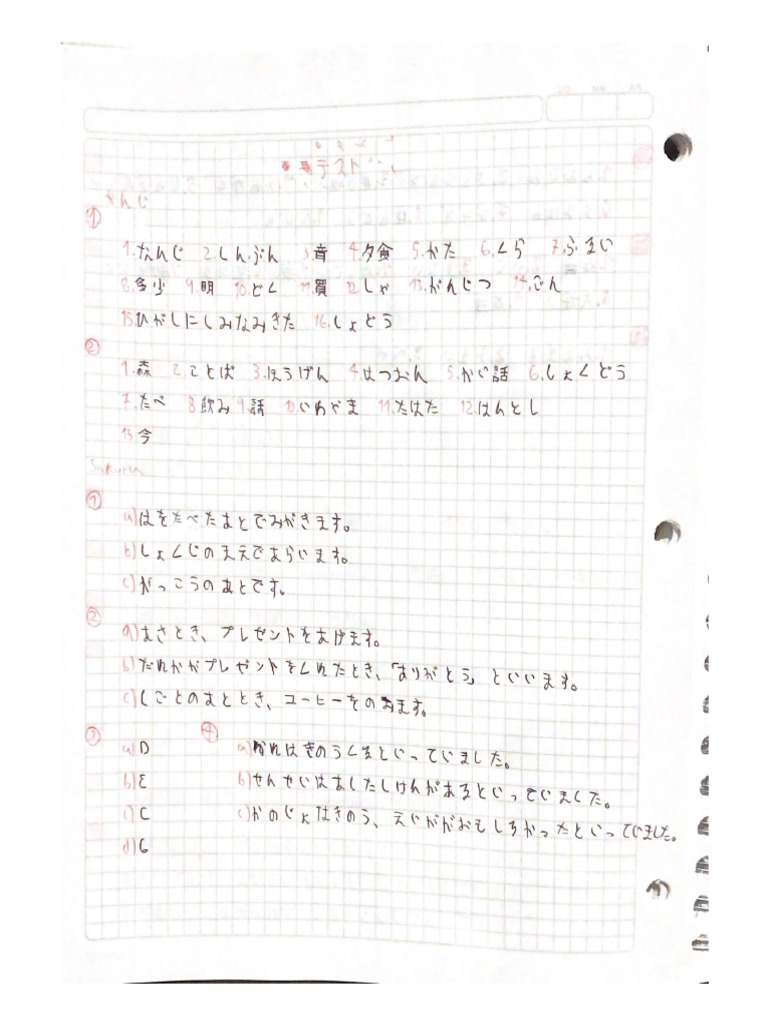 テスト
かんじ
①
1.なんじ 2.しんぶん 3.音 4.夕食 5.かた 6.くら 7.ふ.るい
8.多少 9.明 10.どく 11.買 12.しゃ 13.がんじつ 14.ごん
15.ひがしにしみなみきた 16.しょとう
②
1.森 2.ことば 3.ほうげん 4.はつおん 5.かい話 6.しょくどう
7.たべ 8.飲み 9.話 10.いわやま 11.たはた 12.はんとし
13.今
Sakura
①
a)はをたべたあとでみがきます。
b)しょくじのまえであらいます。
c)がっこうのあとです。
②
a)あさとき、プレゼントをあげます。
b)だれかがプレゼントをくれたとき、「ありがとう」といいます。
c)しごとのあととき、コーヒーをのみます。
③ ④
a)D a)かれはきのうくるといっていました。
b)E b)せんせいはあしたしけんがあるといっていました。
c)C c)かのじょはきのう、えいががおもしろかったといっていました。
d)G